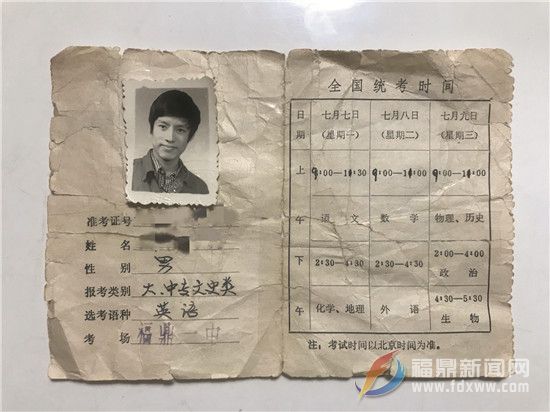 准考证号
姓名
性别 男
报考类别 大.中专文史类
选考语种 英语
考场 福鼎一中
全国统考时间
日期 七月七日(星期一) 七月八日(星期二) 七月九日(星期三)
上午 9:00—11:30 语文 9:00—11:00 数学 9:00—11:00 物理、历史
下午 2:30—4:30 化学、地理 2:30—4:30 外语 2:00—4:00 政治
4:30—5:30 生物
注:考试时间以北京时间为准。
福鼎新闻网
www.fdxww.com